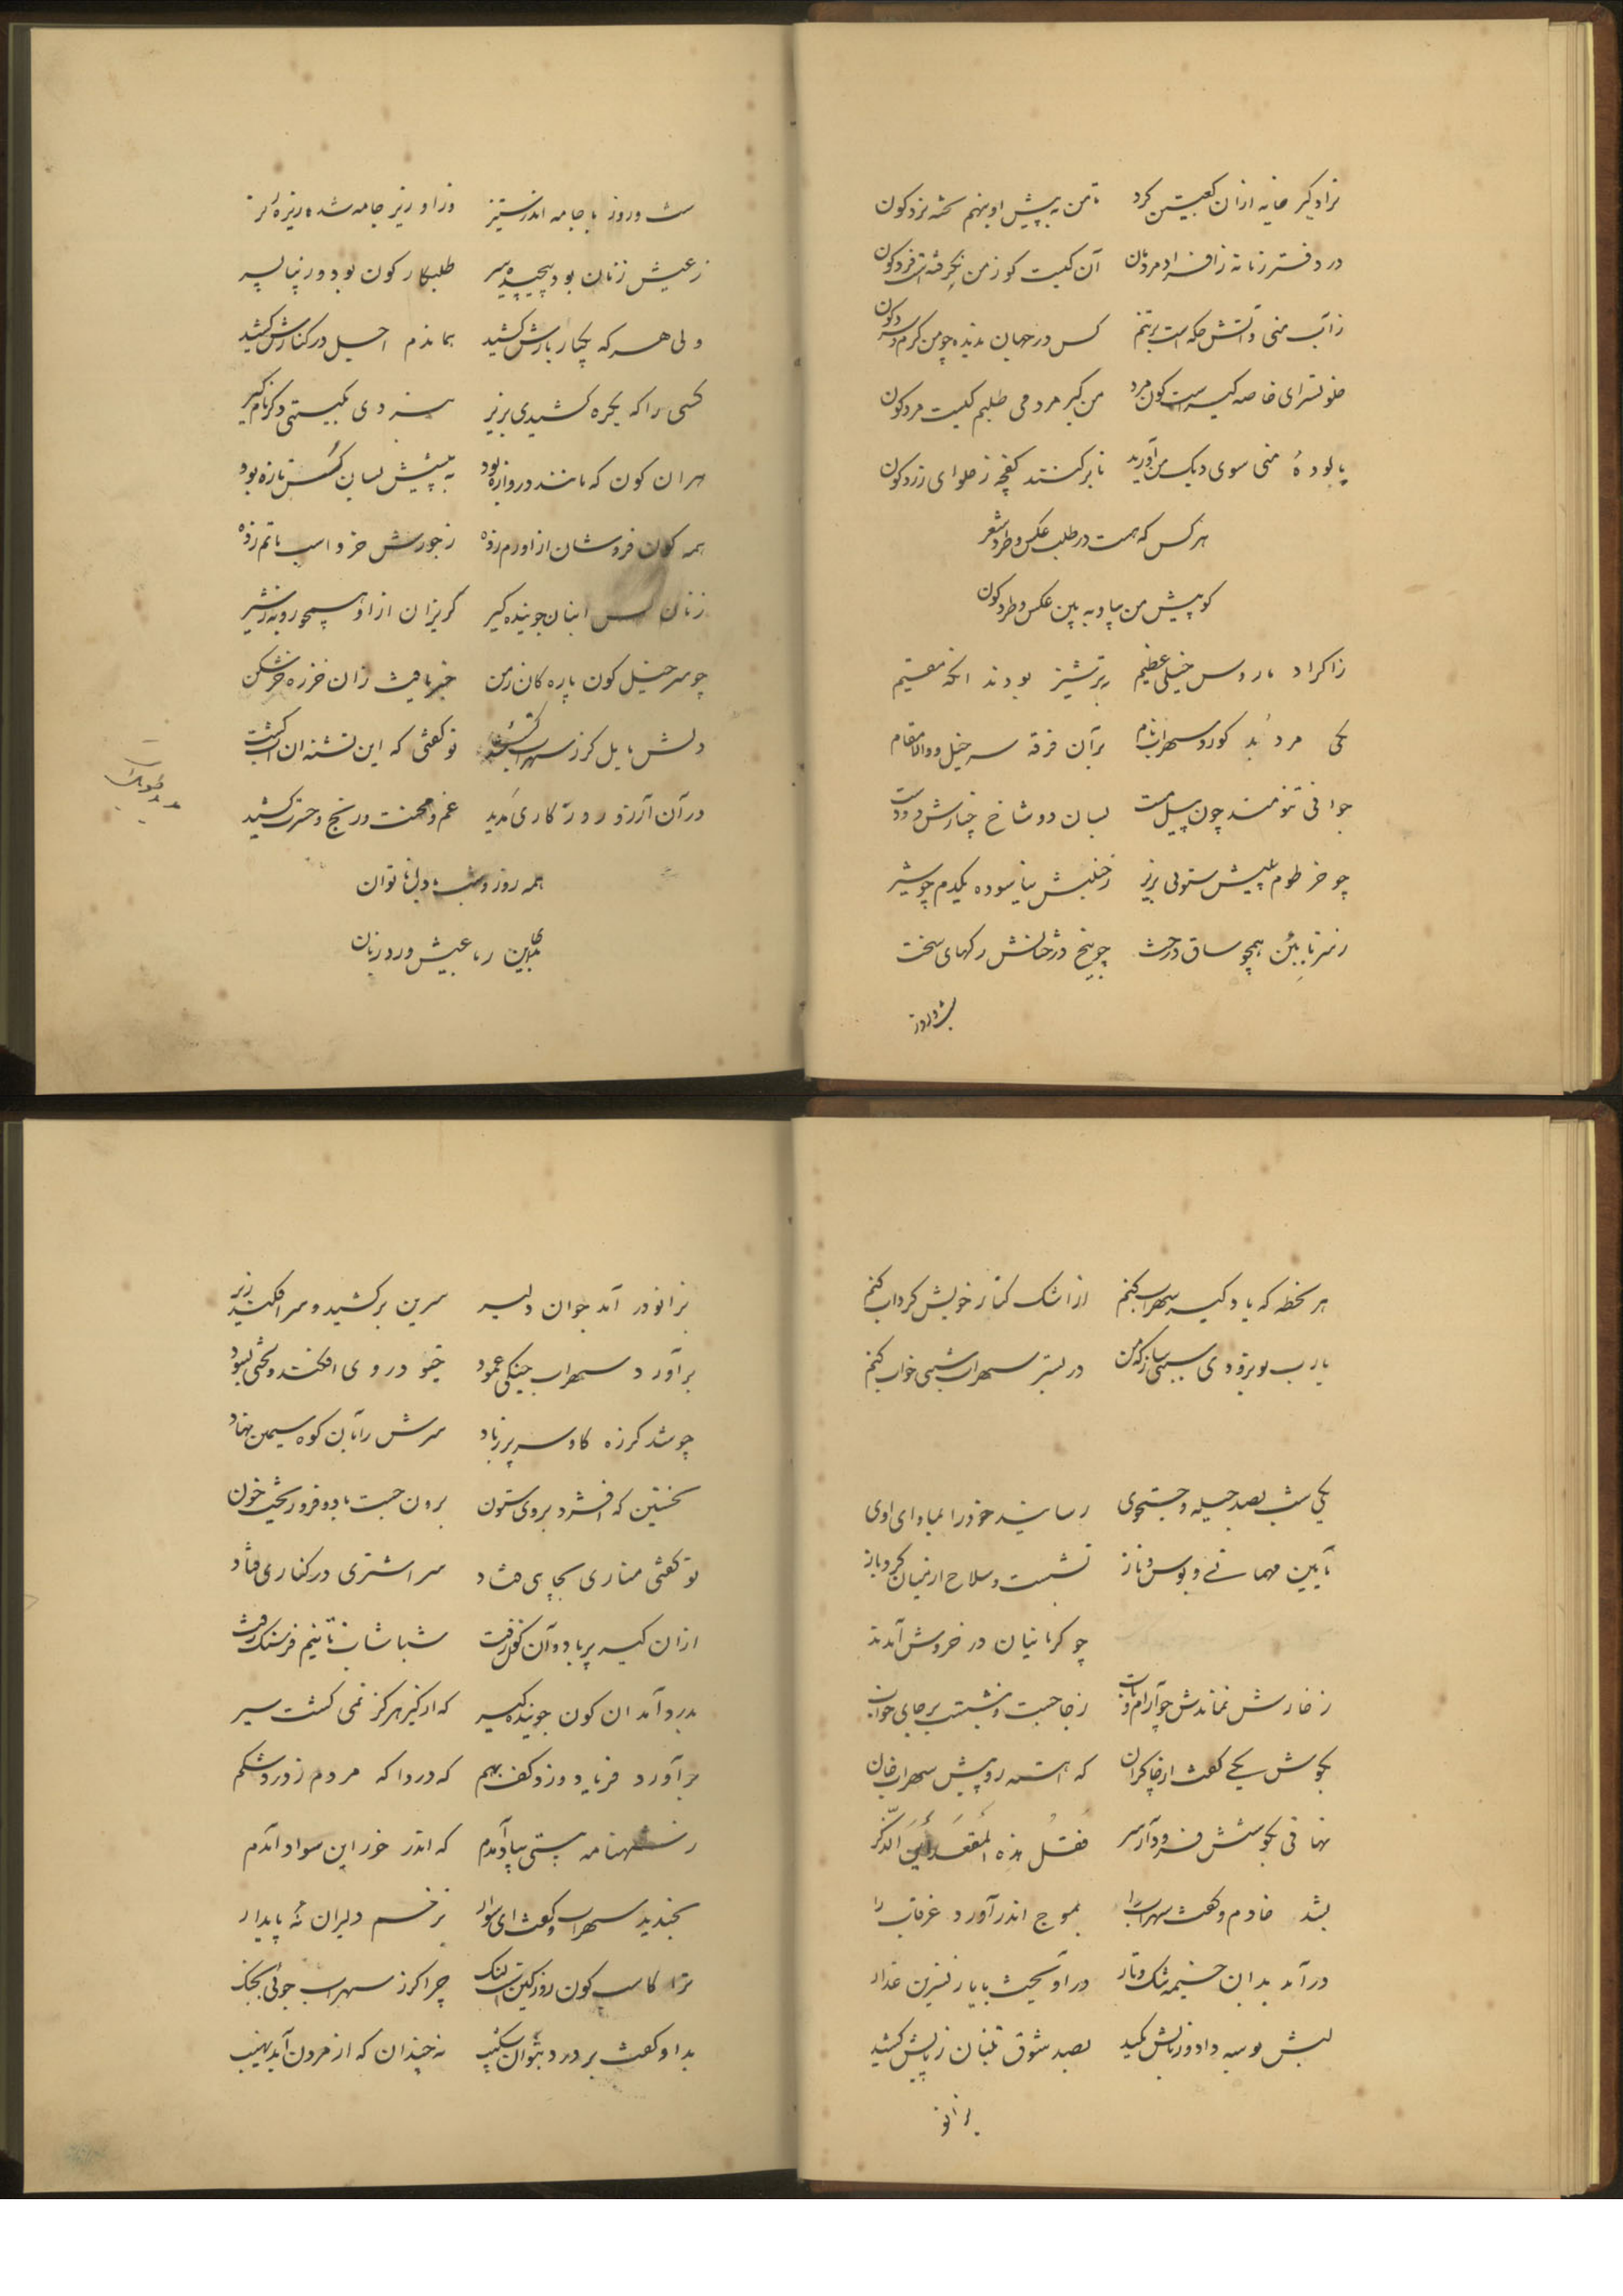 نراد کیر خایه ازان کعبتین کرد تا من به پیش او بنهم تخته نرد کون
در دفتر زمانه ز افراد مردمان آن کیست کو ز من نگرفته است فرد کون
ز آب منی و آتش حکه است بر تنم کس در جهان ندیده چو من گرم و سرد کون
خلوتسرای خاصه کیر است کون مرد من کیر مرد می طلبم کیست مرد کون
پالودهٔ منی سوی دیک من آورید تا بر کنند کفچه ز حلوای زرد کون
هر کس که هست در طلب عکس و طرد شعر
کو پیش من بیا و به بین عکس و طرد کون
ز اکراد با روس خیلی عظیم بترشیز بودند انکه مقیم
یکی مرد بُد کورد سهراب نام بر آن فرقه سرخیل و والا مقام
جوانی تنومند چون پیل مست بسان دو شاخ چنارش دو دست
چو خرطوم پیلیش ستونی بزیر ز خلبش نیاسوده یکدم چو شیر
ز سر تا به بُن همچو ساق درخت چو بیخ درختانش رکهای سخت
شب و روز
شب و روز با جامه اندر ستیز وز او زیر جامه شده ریزه ریز
ز عیش زنان بود پیچیده سر طلبکار کون بود و زیبا پسر
ولی هر که یکبار بارش کشید بماندم اجل در کنارش کشید
کسی را که یکره کشیدی بزیر نبردی بکیتی دکر نام کیر
هر ان کون که مانند دروازه بود به پیشش بسان کُس تازه بود
همه کون فروشان از او رم زده ز جورش خر و اسب ماتم زده
زنان کس ابنان جوینده کیر کریزان از او همچو روبه ز شیر
چو سر خیل کون پاره کان زمن خبر یافت زان خرزه خر شکن
دلش مایل کرز سهراب کشت تو کفتی که این تشنه ان اب کشت
در آن آرزو روزکاری مدید غم و محنت و رنج و حسرت کشید
همه روز و شب با دل ناتوان
همین رباعیش ورد زبان
هر لحظه که یاد کیر سهراب کنم از اشک کنار خویش کرداب کنم
یا رب بوبرو دی سببی ساز که من در بستر سهراب شبی خواب کنم
یکی شب بصد حیله و جستجوی رسانید خود را بماوای اوی
بآیین مهمانی و بوس و ناز نشست و سلاح از میان کرد باز
چو کرمانیان در خروش آمدند
ز خارش نماندش چو آرام و تاب ز جا جست و بنشست بر جای خواب
بکوش یکی کفت از چاکران که اهسته رو پیش سهراب خان
نهانی بکوشش فرود آر سر فقل هذه المقعد أین الذکر
بشد خادم و کفت سهراب را بموج اندر آورد غرقاب را
در آمد بدان چشمه تنک و تار در آویخت با یار نسرین عذار
لبش بوسه داد و زبانش مکید بصد شوق تنبان ز پایش کشید
بزانو
بزانو در آمد جوان دلیر سرین بر کشید و سر افکند زیر
بر آورد سهراب جنکی عمود خیو در وی افکند و لختی بسود
چو شد کرزه کاوسر پر ز باد سرش را بآن کوه سیمین نهاد
نخستین که افشرد بروی ستون برون جست باد و فرو ریخت خون
تو کفتی مناری بچاهی فتاد سر اشتری در کناری فتاد
ازان کیر پر باد و آن کون زفت شباشاب تا نیم فرسنک رفت
بدرد آمد ان کون جوینده کیر که از کیر هرکز نمی کشت سیر
بر آورد فریاد و زد کف بهم که دردا که مردم ز درد شکم
ز شهنامه بیتی بیاد آمدم که اندر خور این سواد آمدم
بخندید سهراب و کفت ای سوار بزخم دلیران نهٔ پایدار
ترا کاسب کون روز کین است لنک چرا کرز سهراب جوئی بجنک
بدو کفت بر درد بتوان شکیب نه چندان که از مردن آید نهیب